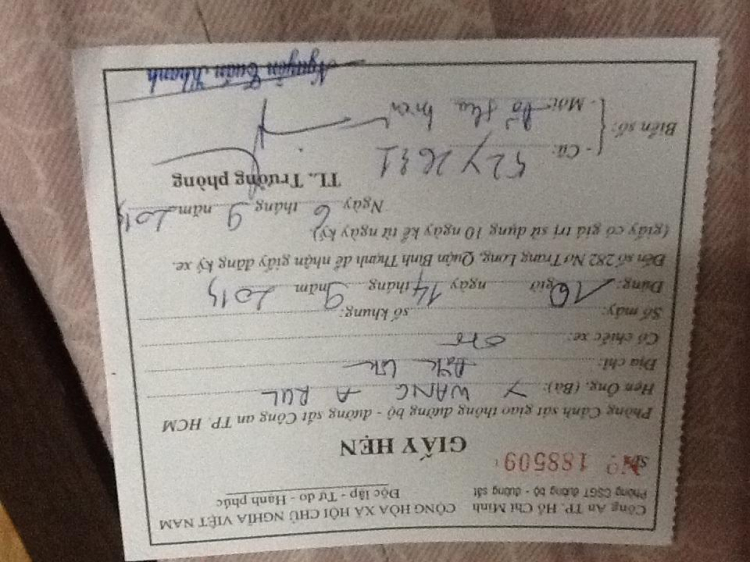 Công An TP. Hồ Chí Minh
Phòng CSGT đường bộ - đường sắt
CỘNG HÒA XÃ HỘI CHỦ NGHĨA VIỆT NAM
Độc lập - Tự do - Hạnh phúc
Nº 188509
GIẤY HẸN
Phòng Cảnh sát giao thông đường bộ - đường sắt Công an TP. HCM
Hẹn Ông, (Bà): Y WANG A RUL
Địa chỉ: Đắk Lắk
Có chiếc xe: oto
Số máy: số khung:
Đúng: giờ ngày 14 tháng 9 năm 2015
Đến số 282 Nơ Trang Long, Quận Bình Thạnh để nhận giấy đăng ký xe.
(giấy có giá trị sử dụng 10 ngày kể từ ngày ký).
Ngày 6 tháng 9 năm 2015
TL. Trưởng phòng
Biển số:
- Cũ: 52Y 2691
- Mới:
Nguyễn Tuấn Khanh